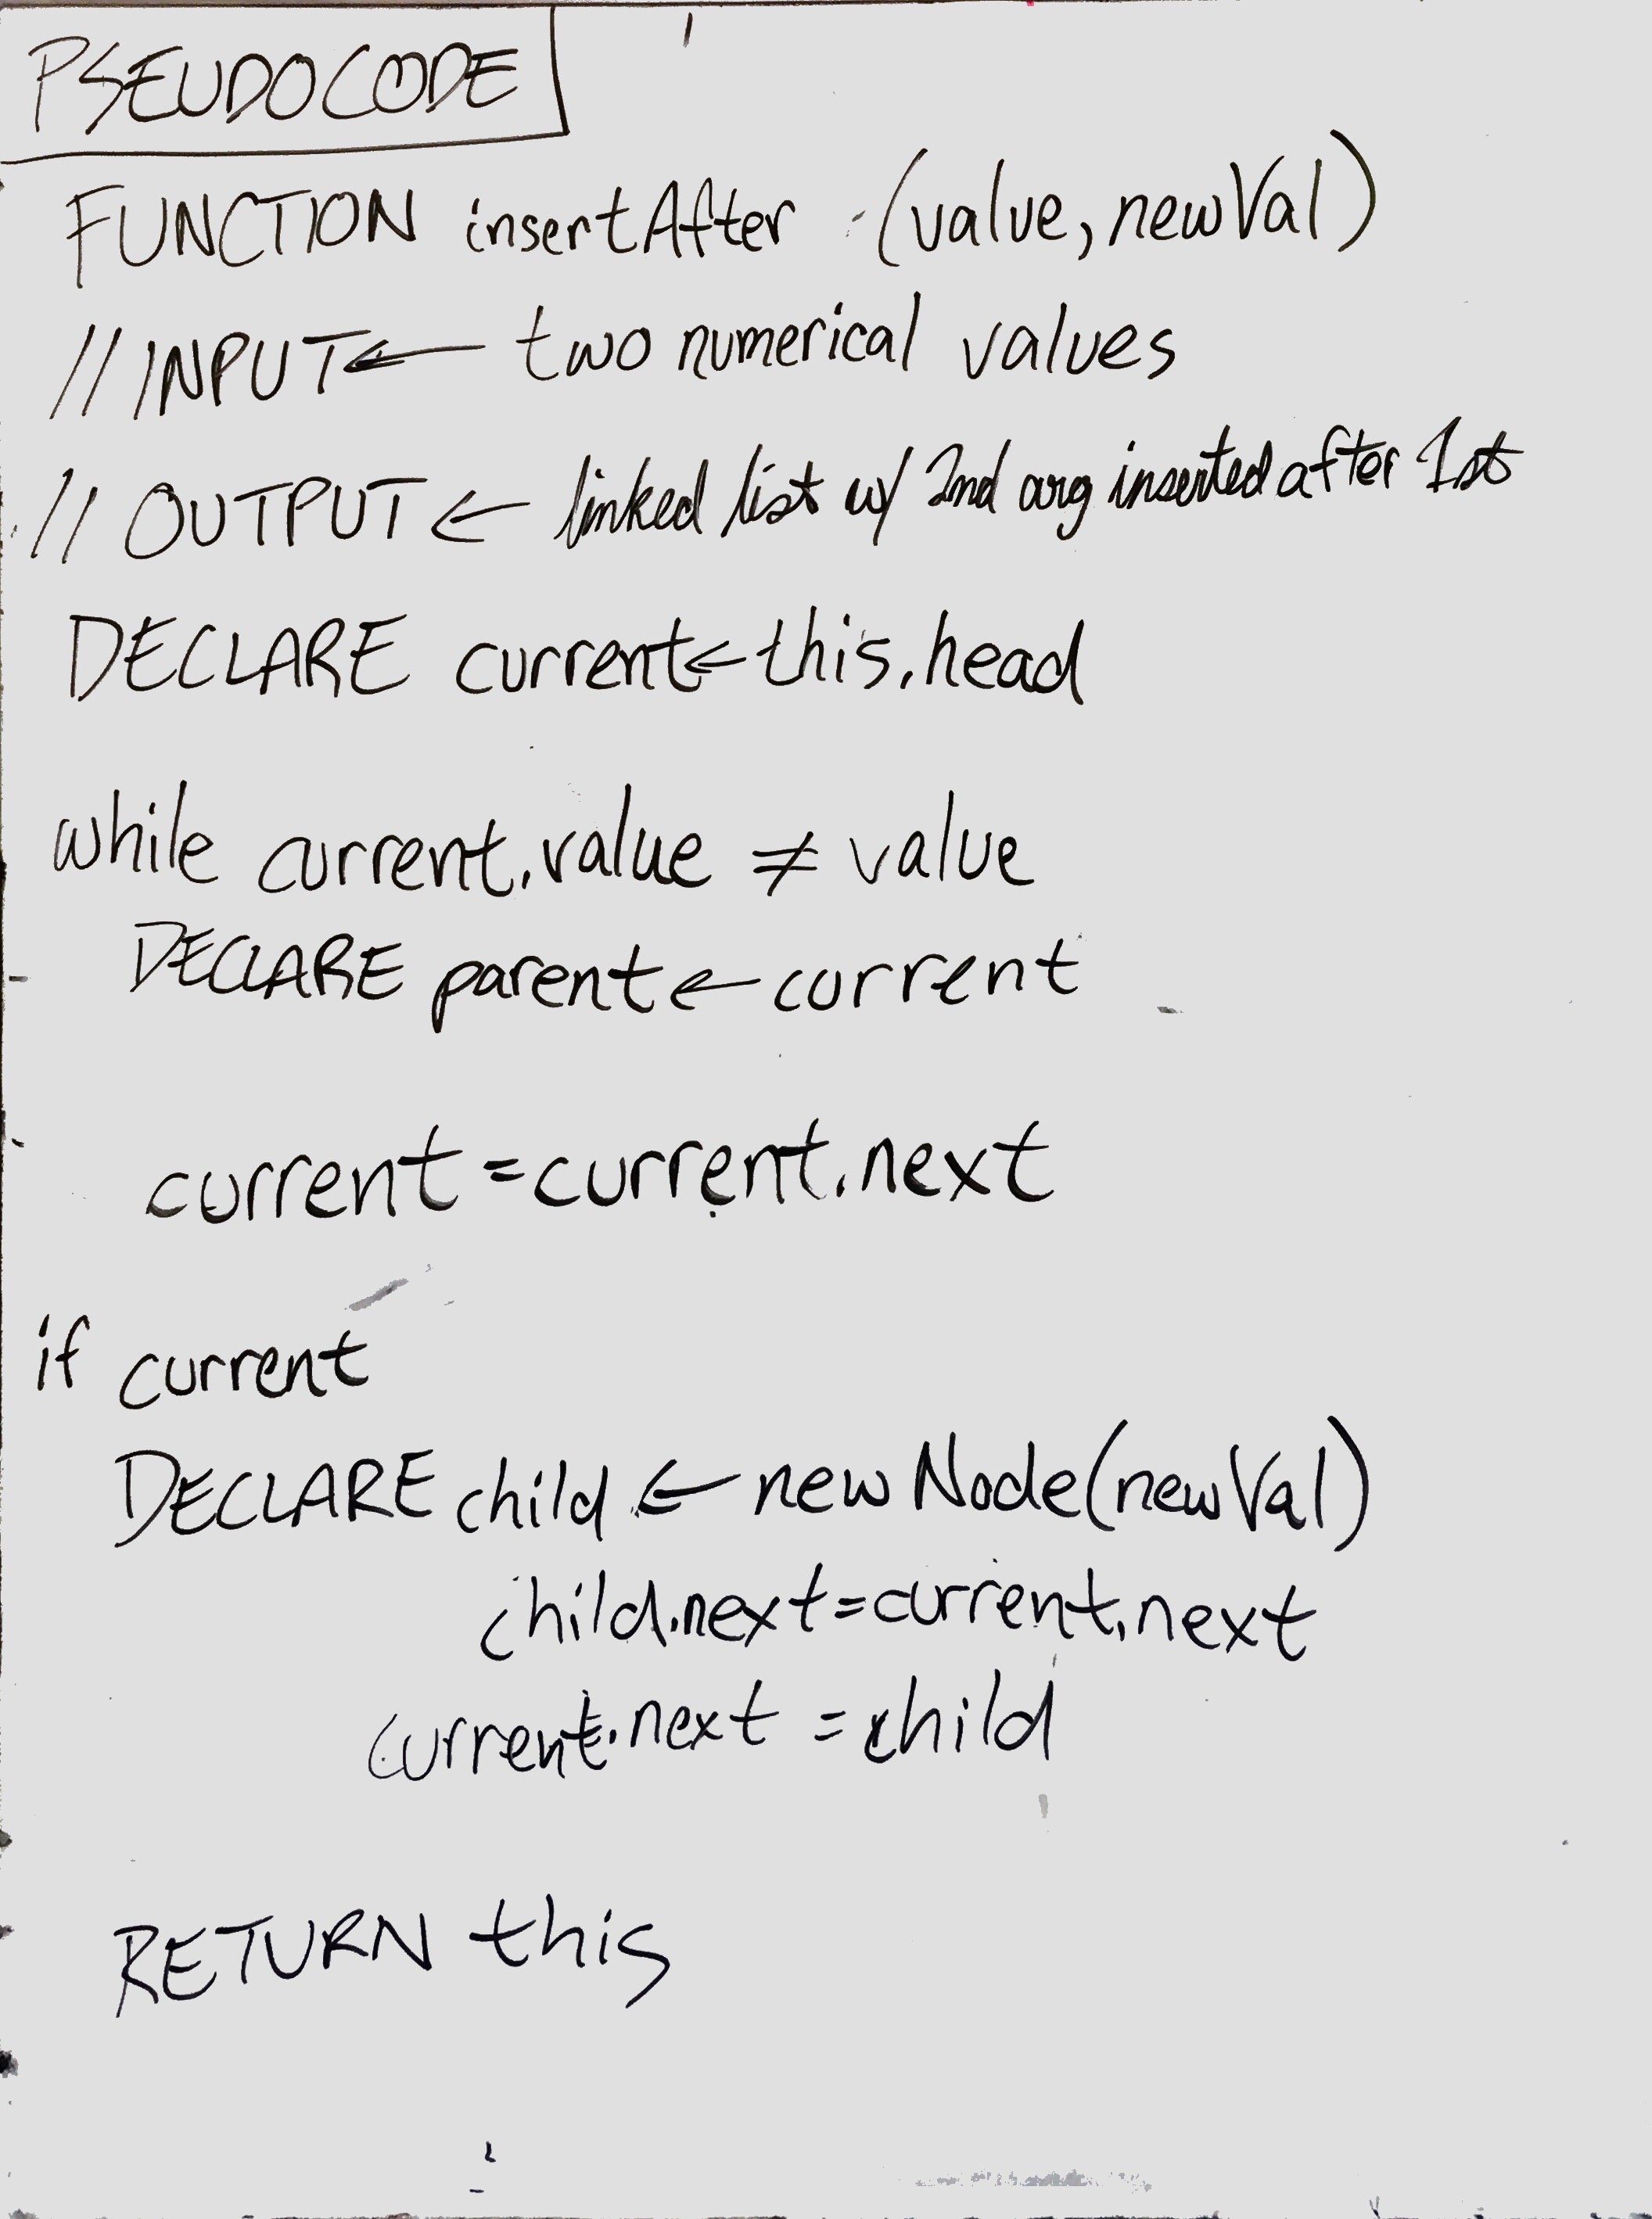 PSEUDOCODE
FUNCTION insertAfter (value, newVal)
// INPUT ← two numerical values
// OUTPUT ← linked list w/ 2nd arg inserted after 1st
DECLARE current ← this.head
while current.value ≠ value
DECLARE parent ← current
current = current.next
if current
DECLARE child ← new Node(newVal)
child.next = current.next
current.next = child
RETURN this